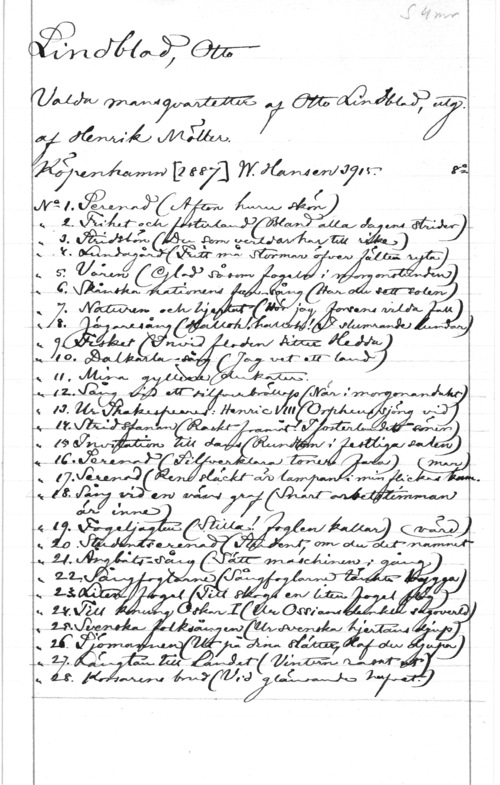 S 4 mr
Lindblad, Otto
Valda mansqvartetter af Otto Lindblad, utg.
af Henrik Möller.
Köpenhamn [1887] W. Hansen 8º
Nº 1. Serenad (Afton huru skön)
" 2. Frihet och fosterland (Bland alla dagens strider)
" 3. Stridsbön (Du som verldar har till rike)
" 4. Lundagård (Fritt må stormar öfver fälten ryta)
" 5. Våren (Glad såsom fogeln i morgonstunden)
" 6. Skånska nationens sång (Har du sett solen)
" 7. Naturen och hjertat (Hör jag forsens vilda fall)
" 8. Jägaresång (Halloh! halloh! I slumrande lundar)
" 9. Fisket (Invid floden sitter Hedda)
" 10. Dalkarls-sång (Jag vet ett land)
" 11. Mina gyllene dukater.
" 12. Sång vid ett silfverbröllop (När i morgonandakt)
" 13. Ur Shakespeares: Henric VIII (Orpheus sjöng vid)
" 14. Stridsfanan (Rackt framåt! Fosterlandets söner)
" 15 Invitation till dans (Rundtom i festliga salen)
" 16. Serenad (Silfverklara toner fara) (mer)
" 17. Serenad (Ren släckt är lampan i min flickas kam.
" 18. Sång vid en väns graf (Snart arbetstimman
är inne)
" 19. Fogeljagten (Stilla! foglen kallar) (vård)
" 20. Studentserenad (Student, om du det namnet
" 21. Ångbåts-Sång (Sätt maschinen i gång)
" 22. Sångfoglarne (Sångfoglarne tänkte bygga)
" 23. Liten fogel (Till skogs en liten fogel flög)
" 24. Till konung Oskar I (Ur Ossians dunkla sagoverld)
" 25. Svenska folksången (Ur svenska hjertans djup)
" 26. Sjömannen (Ut på dina slätter, haf du djupa)
" 27. Längtan till landet (Vintern rasat ut)
" 28. Korsarens brud (Vid glänsande hafvet)